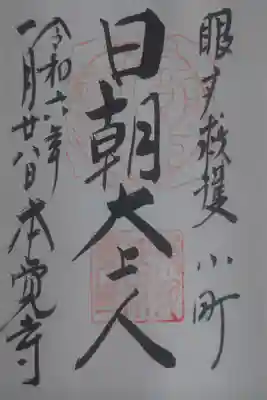 眼守救護 小町
日朝大上人
令和六年
一月廿八日 本覚寺